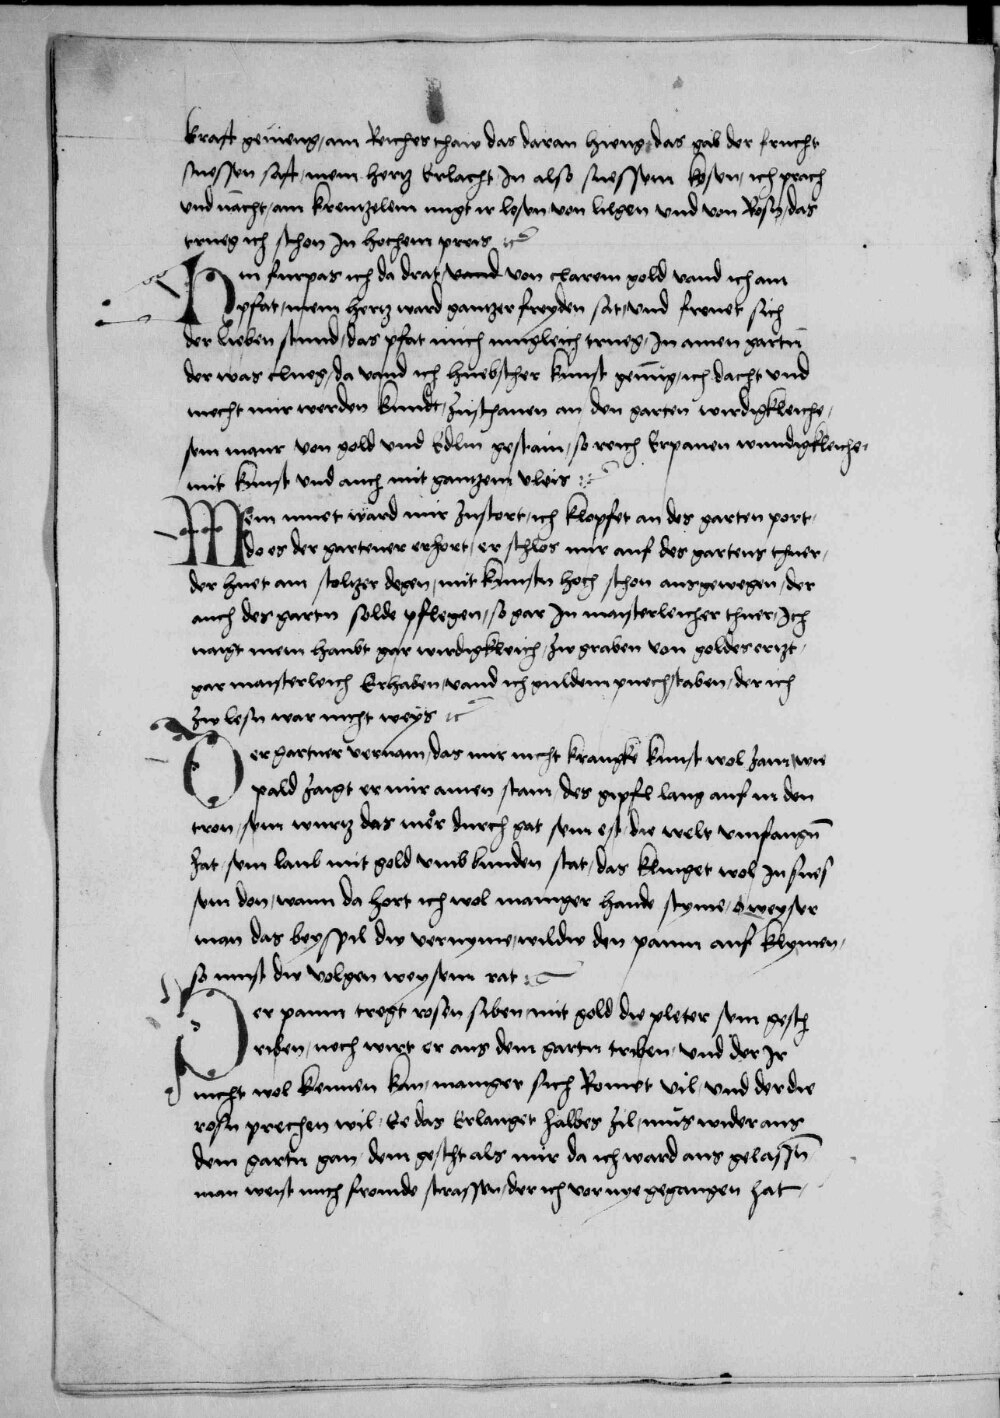 krafft genieng / am Reiches thaw das daran hieng / das gab der frucht
suessen saft / mein hertz Erlacht In also suessem kosen / ich prach
vnd nacht / am krentzelein mugt ir losen von lilgen vnd von Rosn / das
trueg ich schon In hochem preis
In furpas ich da drat / vand von clarem gold vand ich am
pfat / mein hertz ward gantzer freyden sat / vnd frewet sich
der lieben stund / das pfat mich nugleich trueg / In amen gartn
der was clueg / da vand ich huebscher kunst genueg / ich dacht vnd
mecht mir werden kundt / zuschauen an den garten wirdigkleiche /
sein maur von gold vnd Edlm gestain / so reich Erpauen wundigkleiche /
mit kunst vnd auch mit gantzem vleis
Mein muet ward mir zustort / ich klopfet an des garten port /
do es der gartener erhort / er schlos mir auf des gartens thuer /
der huet am stoltzer degen / mit kunstn hoch schon ausgewegen / der
auch des gartn solde pflegen / so gar In maisterleicher thuer / Ich
naigt mein haubt gar wirdigkleich / zw graben von goldes ertzt /
gar maisterleich Erhaben / vand ich guldein puechstaben / der ich
zw lesn war nicht weys
Der gartner vernam / das mir nicht krangke kunst wol zam / wie
pald zaigt er mir amen stam / des gipfl lang auf in den
tron / sein wurtz das mer durch gat sein est / die welt vmfangn
hat / sein laub mit gold vmb bunden stat / das klinget wol In sues
sem don / wann da hort ich wol maniger hande styme / o weyser
man das beyspil dw vernyme / wildw den paum auf klymen /
so must dw volgen weysem rat
Der paum tregt rosen siben / mit gold die pleter sein gesch
riben / noch wirt er aus dem gartn triben / vnd der Ir
nicht wol kennen kan / maniger sich Romet vil / vnd der die
rosn prechen wil / Ee das Erlanget halbes zil / mus wider aus
dem gartn gan / dem gescht als mir da ich ward aus gelassn
man weist mich fromde strassen / der ich vor nye gegangen hat /